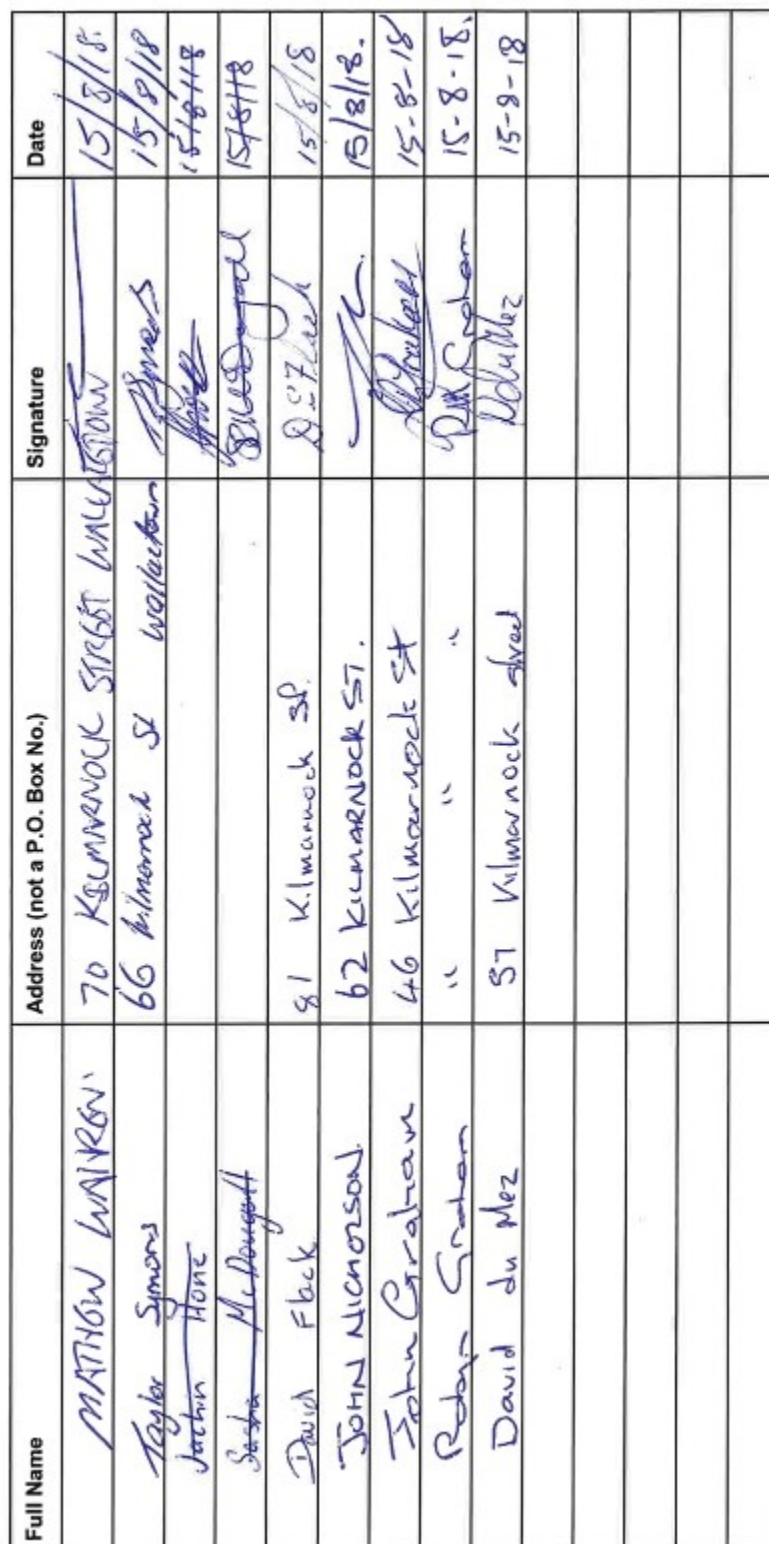 Full Name Address (not a P.O. Box No.) Signature Date
MATHEW WARREN 70 KILMARNOCK STREET WALLACETOWN 15/8/18.
Taylor Symons 66 Kilmarnock St Wallacetown TSymons 15/8/18
Jachin Hone 15/8/18
Sasha McDougall SMcDougall 15/8/18
David Flack 81 Kilmarnock St. D Flack 15/8/18
JOHN NICHOLSON 62 KILMARNOCK ST. 15/8/18.
John Graham 46 Kilmarnock St 15-8-18
Robyn Graham " " " Graham 15-8-18.
David du Mez 57 Kilmarnock street DduMez 15-8-18